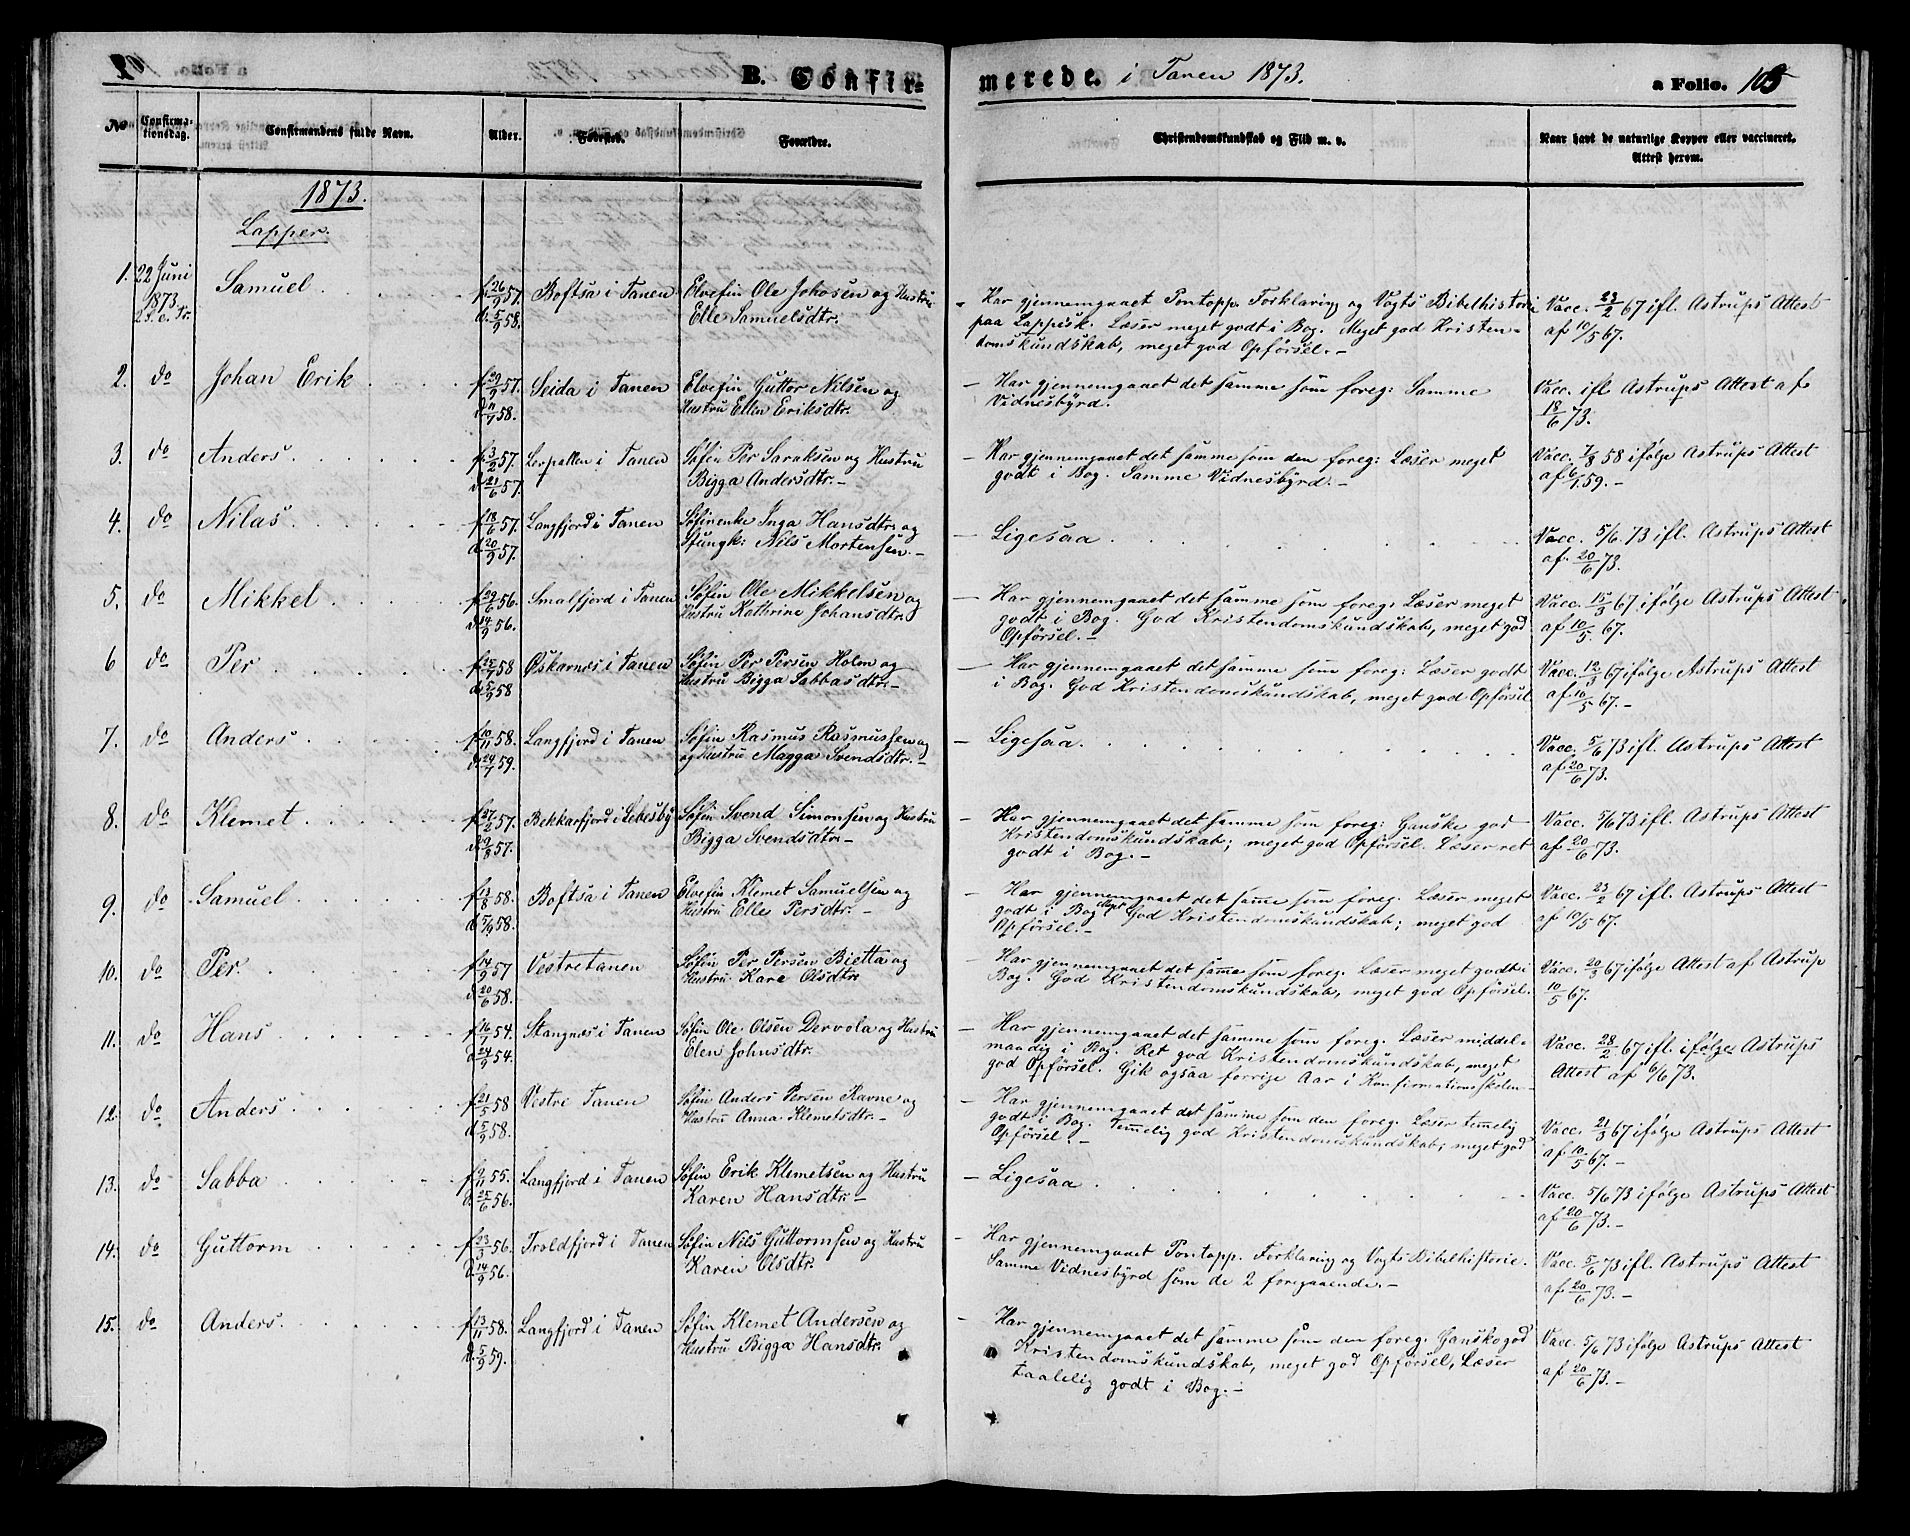 B. Confir-
merede. i Tanen 1873.
a Folio. 103
No
Confirma-
tionsdag.
Confirmandens fulde Navn.
Alder.
Fødested.
Forældre.
Christendomskundskab og Flid m. v.
Naar havt de naturlige Kopper eller vaccineret.
Attest herom.
1873.
Lapper.
1. 22 Juni 1873. 2 S. e. Tr. Samuel f. 26/9 57. d. 5/9 58. Boftsa i Tanen Elvefin Ole Johnsen og Hustru
Elle Samuelsdtr.
- Har gjennemgaaet Pontopp. Forklaring og Vogts Bibelhistorie
paa Lappisk. Læser meget godt i Bog. Meget god Kristen-
domskundskab, meget god Opførsel.-
Vacc. 23/2 67 ifl. Astrups Attest
af 10/5 67.
2. do Johan Erik f. 29/9 57. d. 11/7 58. Seida i Tanen Elvefin Guttor Nilsen og
Hustru Ellen Eriksdtr.
- Har gjennemgaaet det samme som foreg: Samme
Vidnesbyrd.
Vacc. ifl Astrups Attest af
18/6 73.
3. do Anders. f. 3/2 57. d. 21/6 57. Lerpollen i Tanen Søfin Per Saraksen og Hustru
Bigga Andersdtr.-
- Har gjennemgaaet det samme som den foreg: Læser meget
godt i Bog. Samme Vidnesbyrd.-
Vacc. 7/8 58 ifølge Astrups Attest
af 6/1 59.-
4. do Nilas f. 18/6 57. d. 20/9 57. Langfjord i Tanen Søfinenke Inga Hansdtr. og
Stungk: Nils Mortensen.-
- Ligesaa
Vacc. 5/6. 73 ifl. Astrups Attest
af 20/6 73.
5. do Mikkel f. 29/6 56. d. 14/9 56. Smalfjord i Tanen Søfin Ole Mikkelsen og
Hustru Kathrine Johansdtr.
- Har gjennemgaaet det samme som foreg: Læser meget
godt i Bog. God Kristendomskundskab, meget god
Opførsel.-
Vacc. 15/3 67 ifølge Astrups Attest
af 10/5 67.
6 do Per f. 25/7 58 d. 5/9 58 Øskarnæs i Tanen Søfin Per Persen Holm og
Hustru Bigga Sabbasdtr.-
- Har gjennemgaaet det samme som foreg: Læser godt
i Bog. God Kristendomskundskab, meget god Opførsel
Vacc. 12/3 67 ifølge Astrups Attest
af 10/5 67.-
7. do Anders f. 10/11 58. d. 24/7 59. Langfjord i Tanen Søfin Rasmus Rasmussen og
og Hustru Magga Svendsdtr.-
- Ligesaa.
Vacc. 5/6 73 ifl. Astrups Attest
af 20/6 73.
8. do Klemet f. 27/2 57. d. 29/8 57. Bekkarfjord i Lebesby Søfin Svend Simonsen og Hustru
Bigga Svendsdtr.-
- Har gjennemgaaet det samme som foreg: Ganske god
Kristendomskundskab; meget god Opførsel. Læser ret
godt i Bog.-
Vacc. 5/6 73 ifl. Astrups Attest
af 20/6 73.
9. do Samuel f. 13/8 58. d. 5/9 58. Boftsa i Tanen Elvefin Klemet Samuelsen og
Hustru Elle Persdtr.-
- Har gjennemgaaet det samme som foreg. Læser meget
godt i Bog. Meget God Kristendomskundskab; meget god
Opførsel.-
Vacc. 23/2 67 ifl. Astrups Attest
af 10/5 67.
10. do Per. f. 14/9 57 d. 20/6 58. Vestretanen Søfin Per Persen Bietta og
Hustru Kare Olsdtr.
- Har gjennemgaaet det samme som foreg. Læser meget godt i
Bog. God Kristendomskundskab, meget god Opførsel.
Vacc. 20/3 67 ifølge Attest af Astrup
10/5 67.
11. do Hans f. 16/7 54. d. 24/9 54. Stangnæs i Tanen Søfin Ole Olsen Dervola og Hustru
Elen Johnsdtr.
- Har gjennemgaaet det samme som foreg. Læser middel-
maadig i Bog. Ret god Kristendomskundskab, meget
god Opførsel. Gik ogsaa forrige Aar i Konfirmationsskolen-
Vacc. 28/2 67 ifl. ifølge Astrups
Attest af 6/6 73.
12. do Anders f. 21/5 58 d. 5/9 58. Vestre Tanen Søfin Anders Persen Ravne og
Hustru Anna Klemetsdtr.-
- Har gjennemgaaet det samme som den foreg. Læser temelig
godt i Bog. Temelig god Kristendomskundskab; meget god
Opførsel.-
Vacc. 21/3 67 ifølge Astrups Attest
af 10/5 67.-
13. do Sabba f. 9/11 55. d. 25/6 56. Langfjord i Tanen Søfin Erik Klemetsen og Hustru
Karen Hansdtr.-
- Ligesaa
Vacc. 5/6 73 ifølge Astrups Attest
af 20/6 73.-
14. do Guttorm f. 23/3 56. d. 14/9 56. Troldfjord i Tanen Søfin Nils Guttormsen og Hustru
Karen Olsdtr.
- Har gjennemgaaet Pontopp. Forklaring og Vogts Bibelhistorie.
Samme Vidnesbyrd som de 2 foregaaende.-
Vacc. 5/6 73 ifl. Astrups Attest
af 20/6 73.-
15. do Anders. f. 13/11 58. d. 5/9 59. Langfjord i Tanen Søfin Klemet Andersen og
Hustru Bigga Hansdtr.
- Har gjennemgaaet det samme som den foreg: Ganske god
Kristendomskundskab, meget god Opførsel, Læser
taalelig godt i Bog.-
Vacc. 5/6 73 ifølge Astrups Attest
af 20/6 73.-